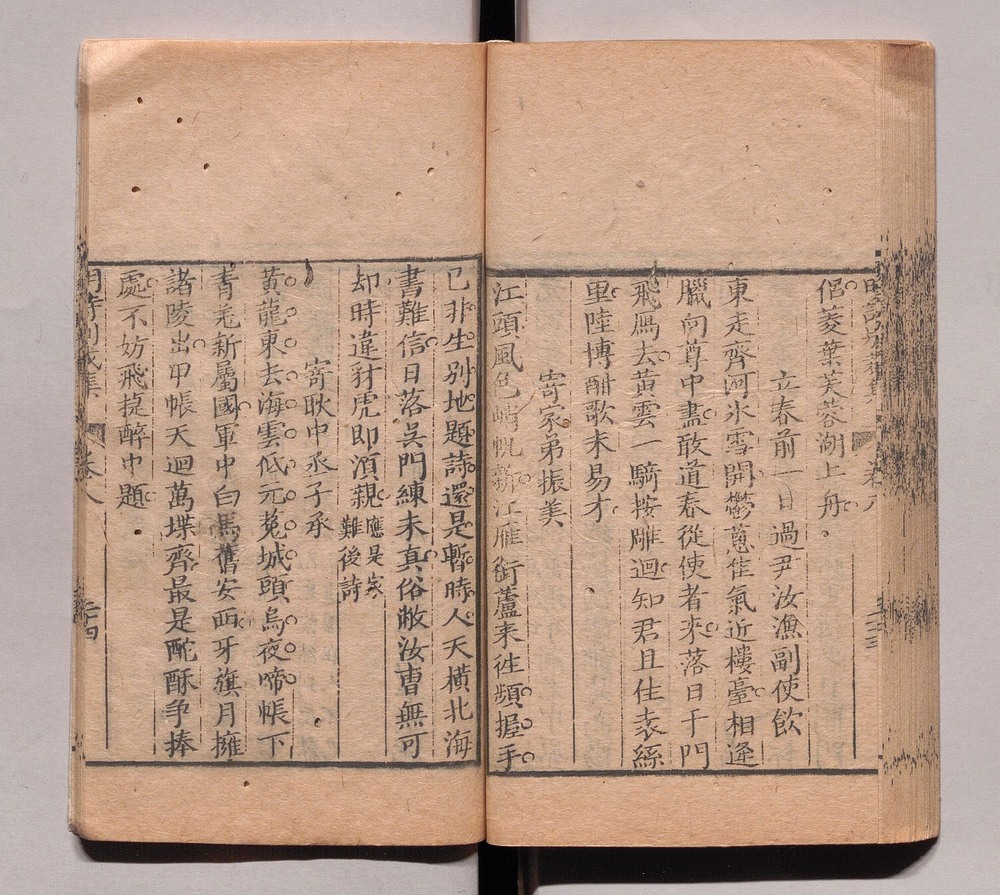 侶菱葉芙蓉湖上舟
立春前一日過尹汝漁副使飲
東走齊河氷雪開鬱蔥佳氣近樓臺相逢
臘向尊中盡敢道春從使者來落日千門
飛鳫去黃雲一騎按雕迴知君且住袁絲
里陸博酣歌未易才
寄家弟振美
江頭風色峭帆新江雁銜蘆來徃頻握手
已非生別地題詩還是暫時人天橫北海
書難信日落吳門練未真俗敝汝曹無可
却時違豺虎即湏親應是家難後詩
寄耿中丞子承
黃龍東去海雲低元菟城頭烏夜啼帳下
青羌新屬國軍中白馬舊安西牙旗月擁
諸陵出甲帳天迴萬堞齊最是酡酥爭捧
處不妨飛捷醉中題
明詩別裁集 卷八 二十四